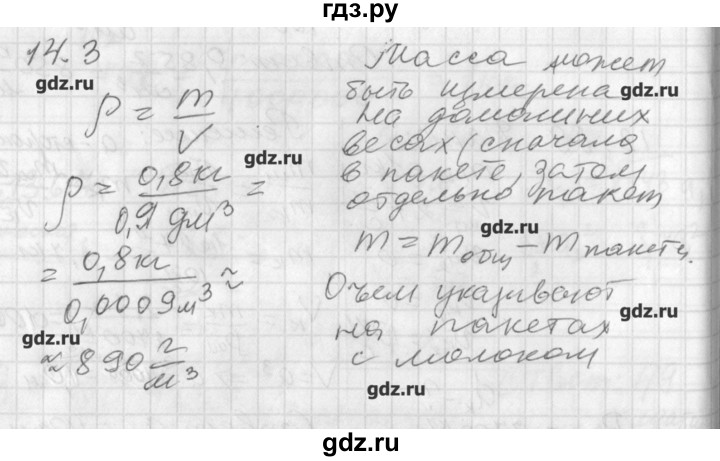 гдз.ру
14.3
gdz.ru
ρ = m/V
gdz.ru
ρ = 0,8кг/0,9 дм³ =
= 0,8кг/0,0009м³ ≈
gdz.ru
≈ 890 г/м³
Масса может
быть измерена
gdz.ru
на домашних
весах (сначала
в пакете, затем
отдельно пакет
gdz.ru
m = mобщ − mпакета.
Оъем указывают
gdz.ru
на пакетах
с молоком
gdz.ru
gdz.ru